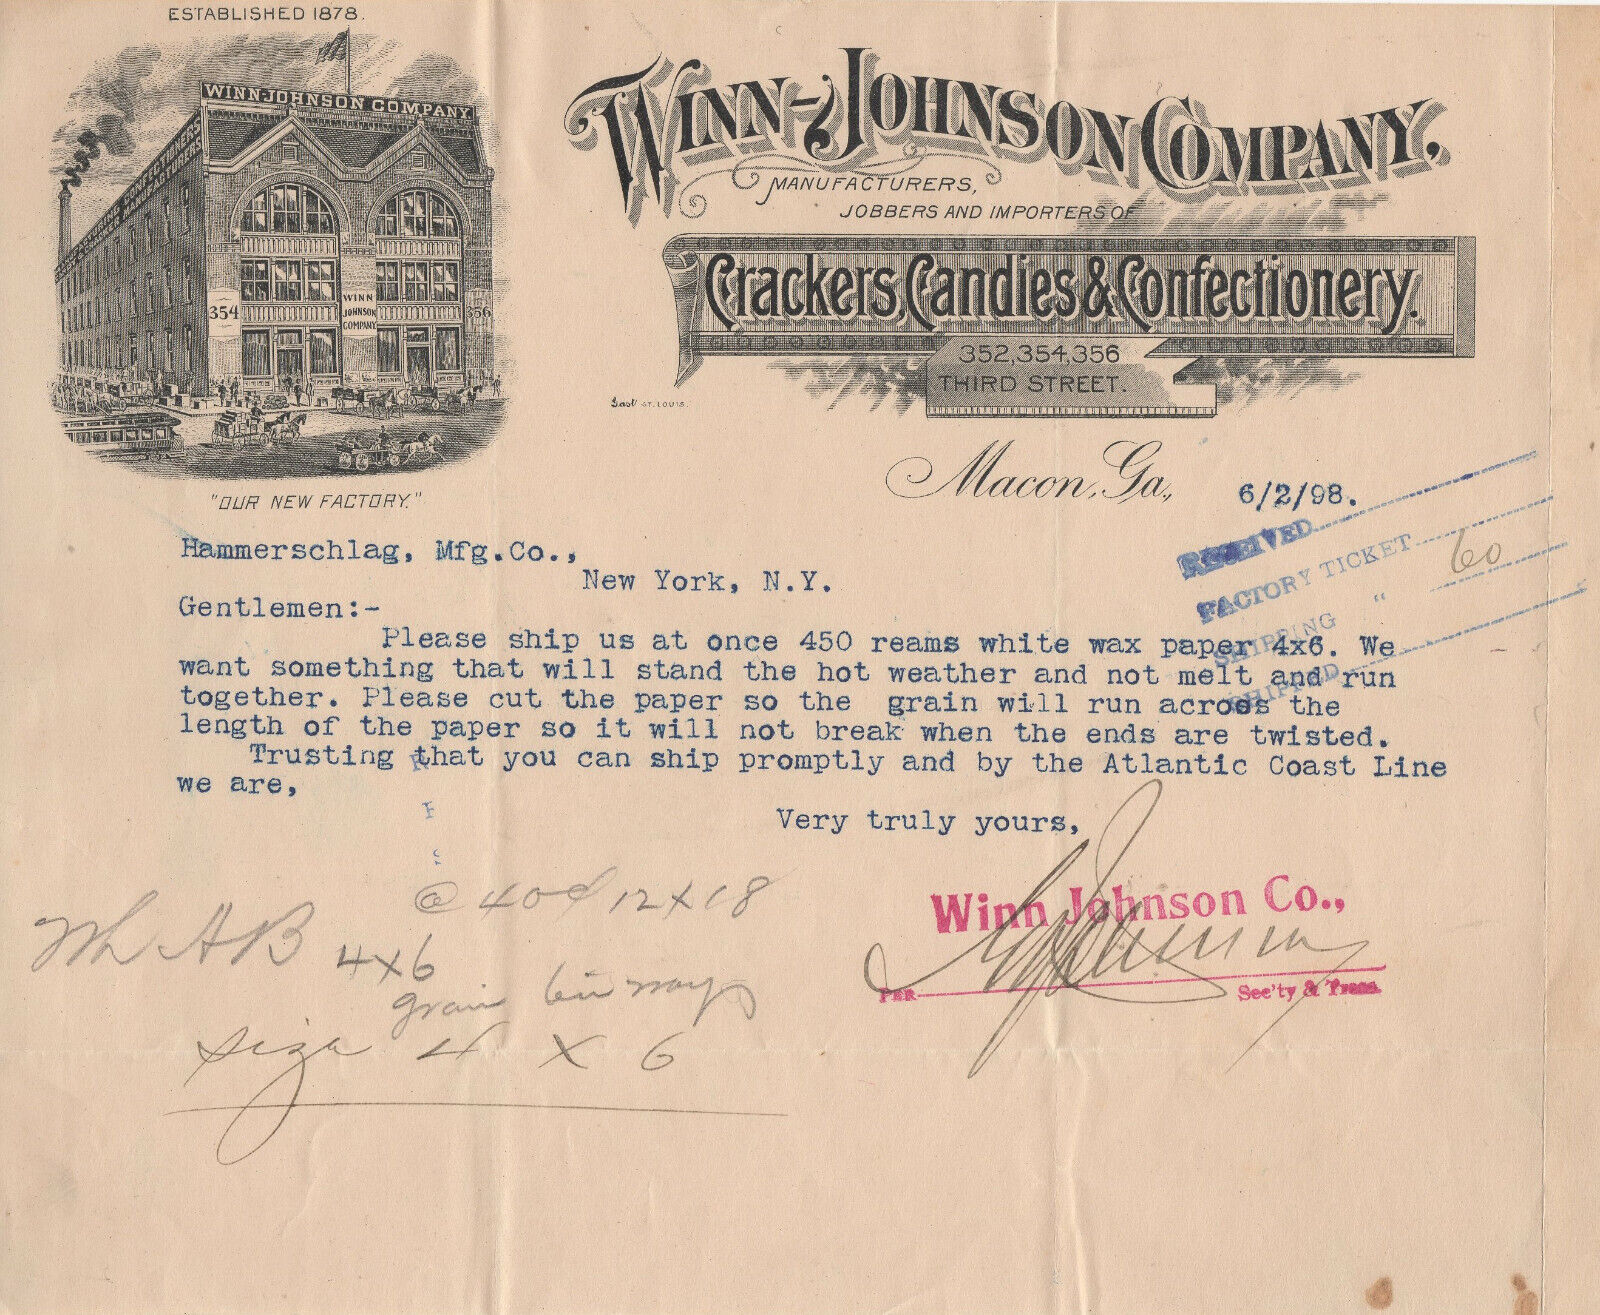 ESTABLISHED 1878.
WINN-JOHNSON COMPANY.
354
WINN
JOHNSON
COMPANY
356
"OUR NEW FACTORY."
WINN-JOHNSON COMPANY,
MANUFACTURERS,
JOBBERS AND IMPORTERS OF
Crackers, Candies & Confectionery.
352,354,356
THIRD STREET.
Gast ST. LOUIS.
Macon, Ga., 6/2/98.
RECEIVED
FACTORY TICKET 60
SHIPPING "
SHIPPED
Hammerschlag, Mfg.Co.,
New York, N.Y.
Gentlemen:-
Please ship us at once 450 reams white wax paper 4x6. We
want something that will stand the hot weather and not melt and run
together. Please cut the paper so the grain will run across the
length of the paper so it will not break when the ends are twisted.
Trusting that you can ship promptly and by the Atlantic Coast Line
we are,
Very truly yours,
Winn Johnson Co.,
PER Sec'ty & Treas.
@ 40¢ 12x18
Wh AB 4x6
grain
size 4 x 6